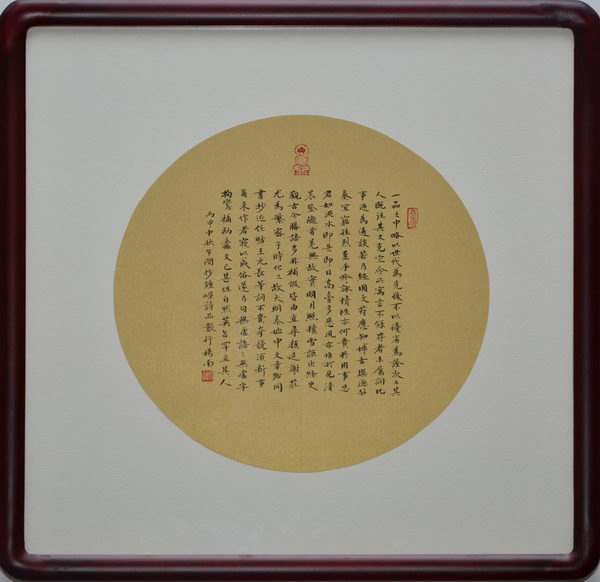 一品之中略以世代為先後不以優劣為詮次又其
人既往其文克定今所寓言不錄存者夫屬詞比
事迺為通談若乃經國文符應知博古撰德駁
奏宜窮往烈至乎吟詠情性亦何貴於用事思
君如流水即是即目高臺多悲風亦惟所見清
晨登隴首羌無故實明月照積雪詎出経史
觀古今勝語多非補假皆由直尋顏延謝莊
尤為繁密于時化之故大明泰始中文章殆同
書抄近任昉王元長等詞不貴奇競須新事
爾来作者寢以成俗遂乃句無虛語語無虛字
拘攣補衲蠹文已甚但自然英旨罕直其人
丙申中秋午間抄鍾嶸詩品數行楊南